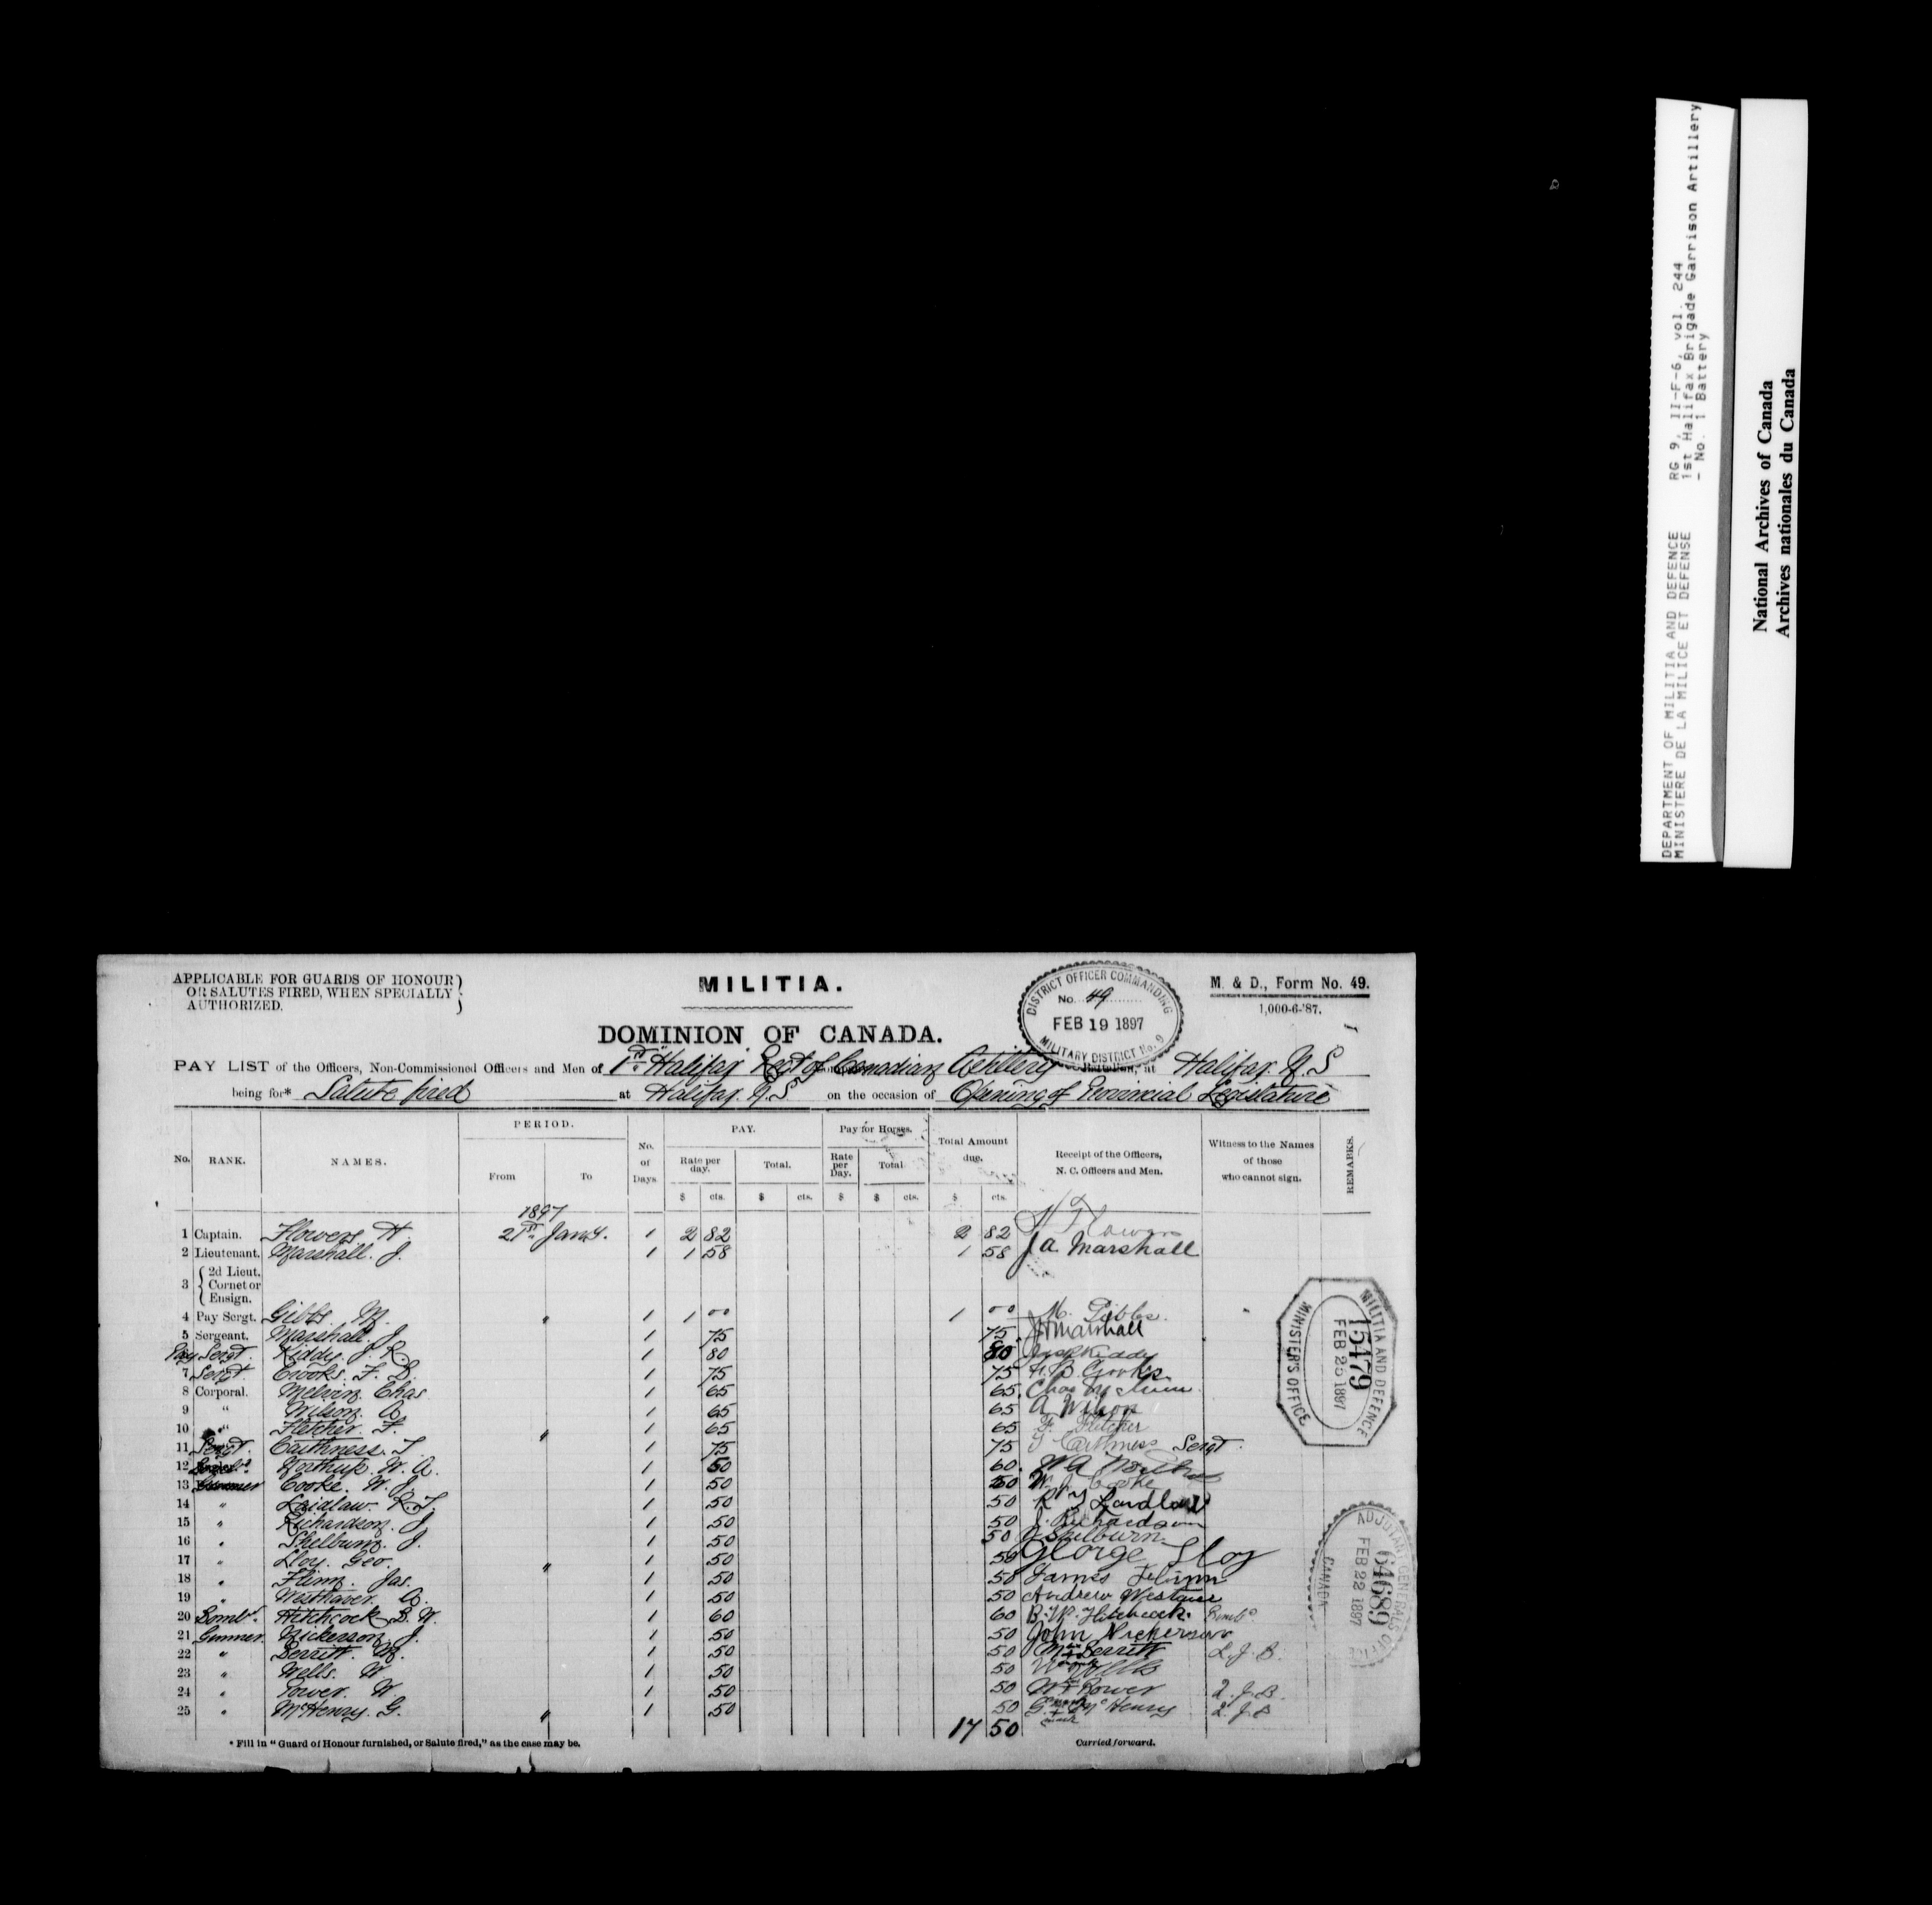 DEPARTMENT OF MILITIA AND DEFENCE
MINISTERE DE LA MILICE ET DEFENSE
RG 9, II-F-6, vol. 244
1st Halifax Brigade Garrison Artillery
- No. 1 Battery
National Archives of Canada
Archives nationales du Canada
APPLICABLE FOR GUARDS OF HONOUR
OR SALUTES FIRED, WHEN SPECIALLY
AUTHORIZED.
MILITIA.
DOMINION OF CANADA.
DISTRICT OFFICER COMMANDING
No. 49
FEB 19 1897
MILITARY DISTRICT No. 9
M. & D., Form No. 49.
1,000-6-'87.
PAY LIST of the Officers, Non-Commissioned Officers and Men of 1st Halifax Regt of Canadian Artillery Battalion, at Halifax N.S
being for* Salute fired at Halifax. N.S on the occasion of Opening of Provincial Legislature
No. RANK. NAMES. PERIOD. From To No. of Days PAY. Rate per day. Total. Pay for Horses. Rate per Day. Total Total Amount due. Receipt of the Officers, N. C. Officers and Men. Witness to the Names of those who cannot sign. REMARKS.
$ cts. $ cts. $ $ cts. $ cts.
1897
1 Captain. Flowers. H. 21st Jany. 1 2 82 2 82 H Flowers
2 Lieutenant. Marshall. J. 1 1 58 1 58 J a. Marshall
3 2d Lieut. Cornet or Ensign.
4 Pay Sergt. Gibbs. M. " 1 1 00 1 00 M. Gibbs.
5 Sergeant. Marshall. J 1 75 75 Marshall
Pay Sergt. Kiddy. J. R. 1 80 80 Kiddy
7 Sergt. Crooks. F. B. 1 75 75 F. B. Crooks
8 Corporal. Melvin. Chas 1 65 65 Chas Melvin
9 " Wilson. A. 1 65 65 A Wilson
10 " Fletcher. F. " 1 65 65 F. Fletcher
11 Sergt. Caithness. T. 1 75 75 T Caithness Sergt.
12 Northup. W. A. 1 50 60 W A Northup
13 Gunner Cooke. W. J. 1 50 50 W. J. Cooke
14 " Laidlaw. R. T. 1 50 50 R T Laidlaw
15 " Richardson. J. 1 50 50 J. Richardson
16 " Shelburn. J. 1 50 50 J Shelburn
17 " Sloy. Geo. " 1 50 50 George Sloy
18 " Flinn. Jas. 1 50 50 James Flinn
19 " Westhaver. A. 1 50 50 Andrew
20 Bombr. Hitchcock B. W. 1 60 60 B. W. Hitchcock. Bombr.
21 Gunner. Nickerson J. 1 50 50 John Nickerson
22 " Berritt. M. 1 50 50 M Berritt L. J. B.
23 " Wells. W. 1 50 50 W Wells
24 " Power. W. 1 50 50 Wm Power L. J. B.
25 " McHenry. G. " 1 50 50 G. McHenry L. J. B
mark
17 50
* Fill in "Guard of Honour furnished, or Salute fired," as the case may be.
Carried forward.
MILITIA AND DEFENCE
15479
FEB 25 1897
MINISTER'S OFFICE
ADJUTANT GENERAL'S OFFICE
64689
FEB 22 1897
CANADA